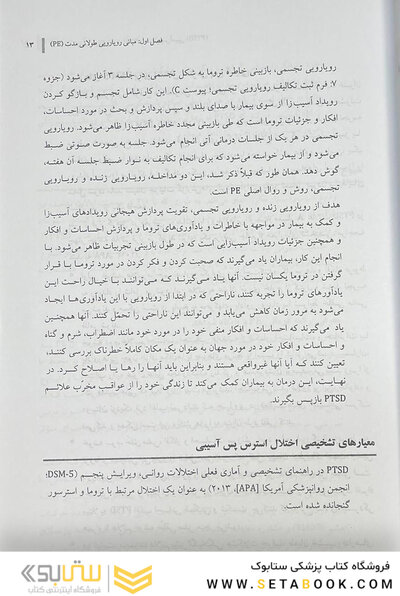 فصل اول: مبانی رویارویی طولانی مدت (PE) ۱۳
رویارویی تجسمی، بازبینی خاطره تروما به شکل تجسمی، در جلسه ۳ آغاز می‌شود (جزوه
۷: فرم ثبت تکالیف رویارویی تجسمی؛ پیوست C). این کار شامل تجسم و بازگو کردن
رویداد آسیب‌زا از سوی بیمار با صدای بلند و سپس پردازش و بحث در مورد احساسات،
افکار و جزئیات تروما است که طی بازبینی مجدد خاطره آسیب‌زا ظاهر می‌شود. رویارویی
تجسمی در هر یک از جلسات درمانی آتی انجام می‌شود. جلسه به صورت صوتی ضبط
می‌شود و از بیمار خواسته می‌شود که برای انجام تکالیف به نوار ضبط جلسه آن هفته،
گوش دهد. همان طور که قبلاً ذکر شد، این دو مداخله، رویارویی زنده و رویارویی
تجسمی، روش و روال اصلی PE است.
هدف از رویارویی زنده و رویارویی تجسمی، تقویت پردازش هیجانی رویدادهای آسیب‌زا
و کمک به بیمار در مواجهه با خاطرات و یادآوری‌های تروما و پردازش احساسات و افکار
و همچنین جزئیات رویداد آسیب‌زایی است که در طول بازبینی تجربیات ظاهر می‌شود. با
انجام این کار، بیماران یاد می‌گیرند که صحبت کردن و فکر کردن در مورد تروما با قرار
گرفتن در تروما یکسان نیست. آنها یاد می‌گیرند که می‌توانند با خیال راحت این
یادآورهای تروما را تجربه کنند، ناراحتی که در ابتدا از رویارویی با این یادآوری‌ها ایجاد
می‌شود به مرور زمان کاهش می‌یابد و می‌توانند این ناراحتی را تحمّل کنند. آنها همچنین
یاد می‌گیرند که احساسات و افکار منفی خود را در مورد خود مانند اضطراب، شرم و گناه
و احساسات و افکار خود در مورد جهان به عنوان یک مکان کاملاً خطرناک بررسی کنند،
تعیین کنند که آیا آنها غیرواقعی هستند و بنابراین باید آنها را رها یا اصلاح کرد. در
نهایت، این درمان به بیماران کمک می‌کند تا زندگی خود را از عواقب مخرّب علائم
PTSD بازپس بگیرند.
معیارهای تشخیصی اختلال استرس پس آسیبی
PTSD در راهنمای تشخیصی و آماری فعلی اختلالات روانی، ویرایش پنجم (DSM-5؛
انجمن روانپزشکی آمریکا [APA]، ۲۰۱۳) به عنوان یک اختلال مرتبط با تروما و استرسور
گنجانده شده است.
فروشگاه کتاب پزشکی ستابوک
WWW.SETABOOK.COM
ستابوک
فروشگاه اینترنتی کتاب